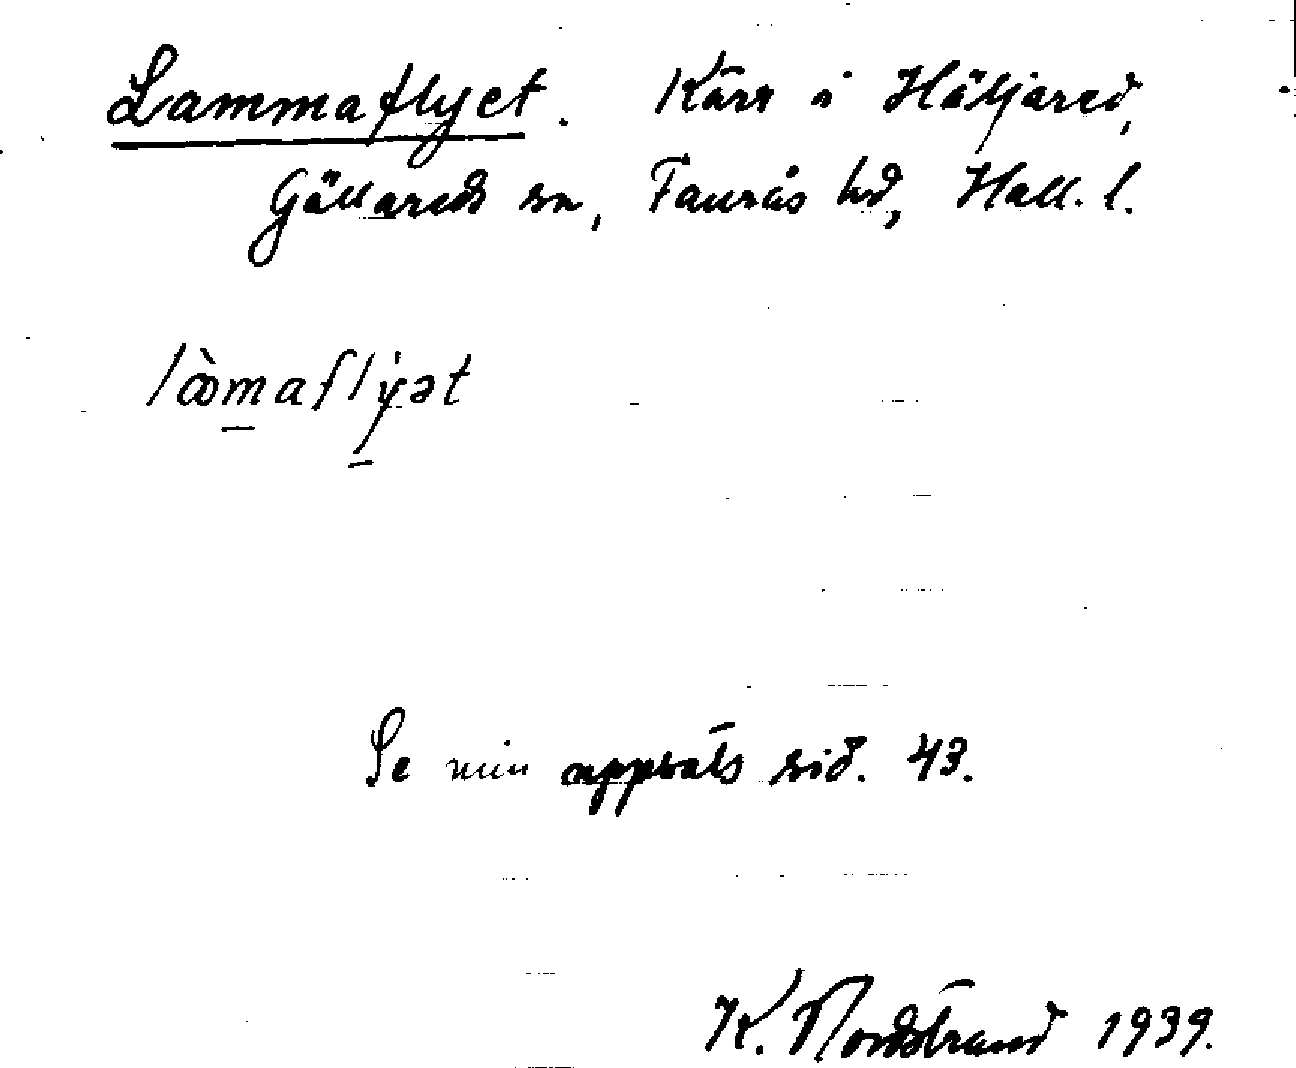 Lammaflyet. Kärr i Häljared,
Gällareds sn, Faurås hd, Hall. l.
lɑ̀maflýət
Se min uppsats sid. 43.
K. Nordstrand 1939.